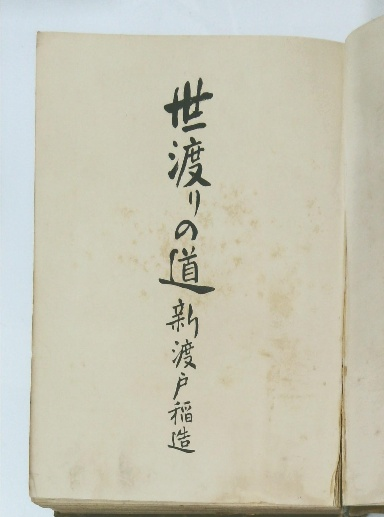 世渡りの道 新渡戸稲造